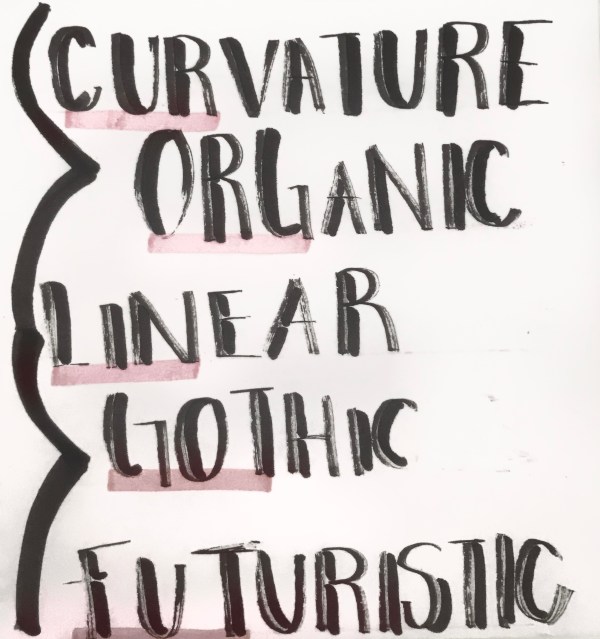 CURVATURE
ORGANIC
LiNEAR
GOTHIC
FUTURISTIC